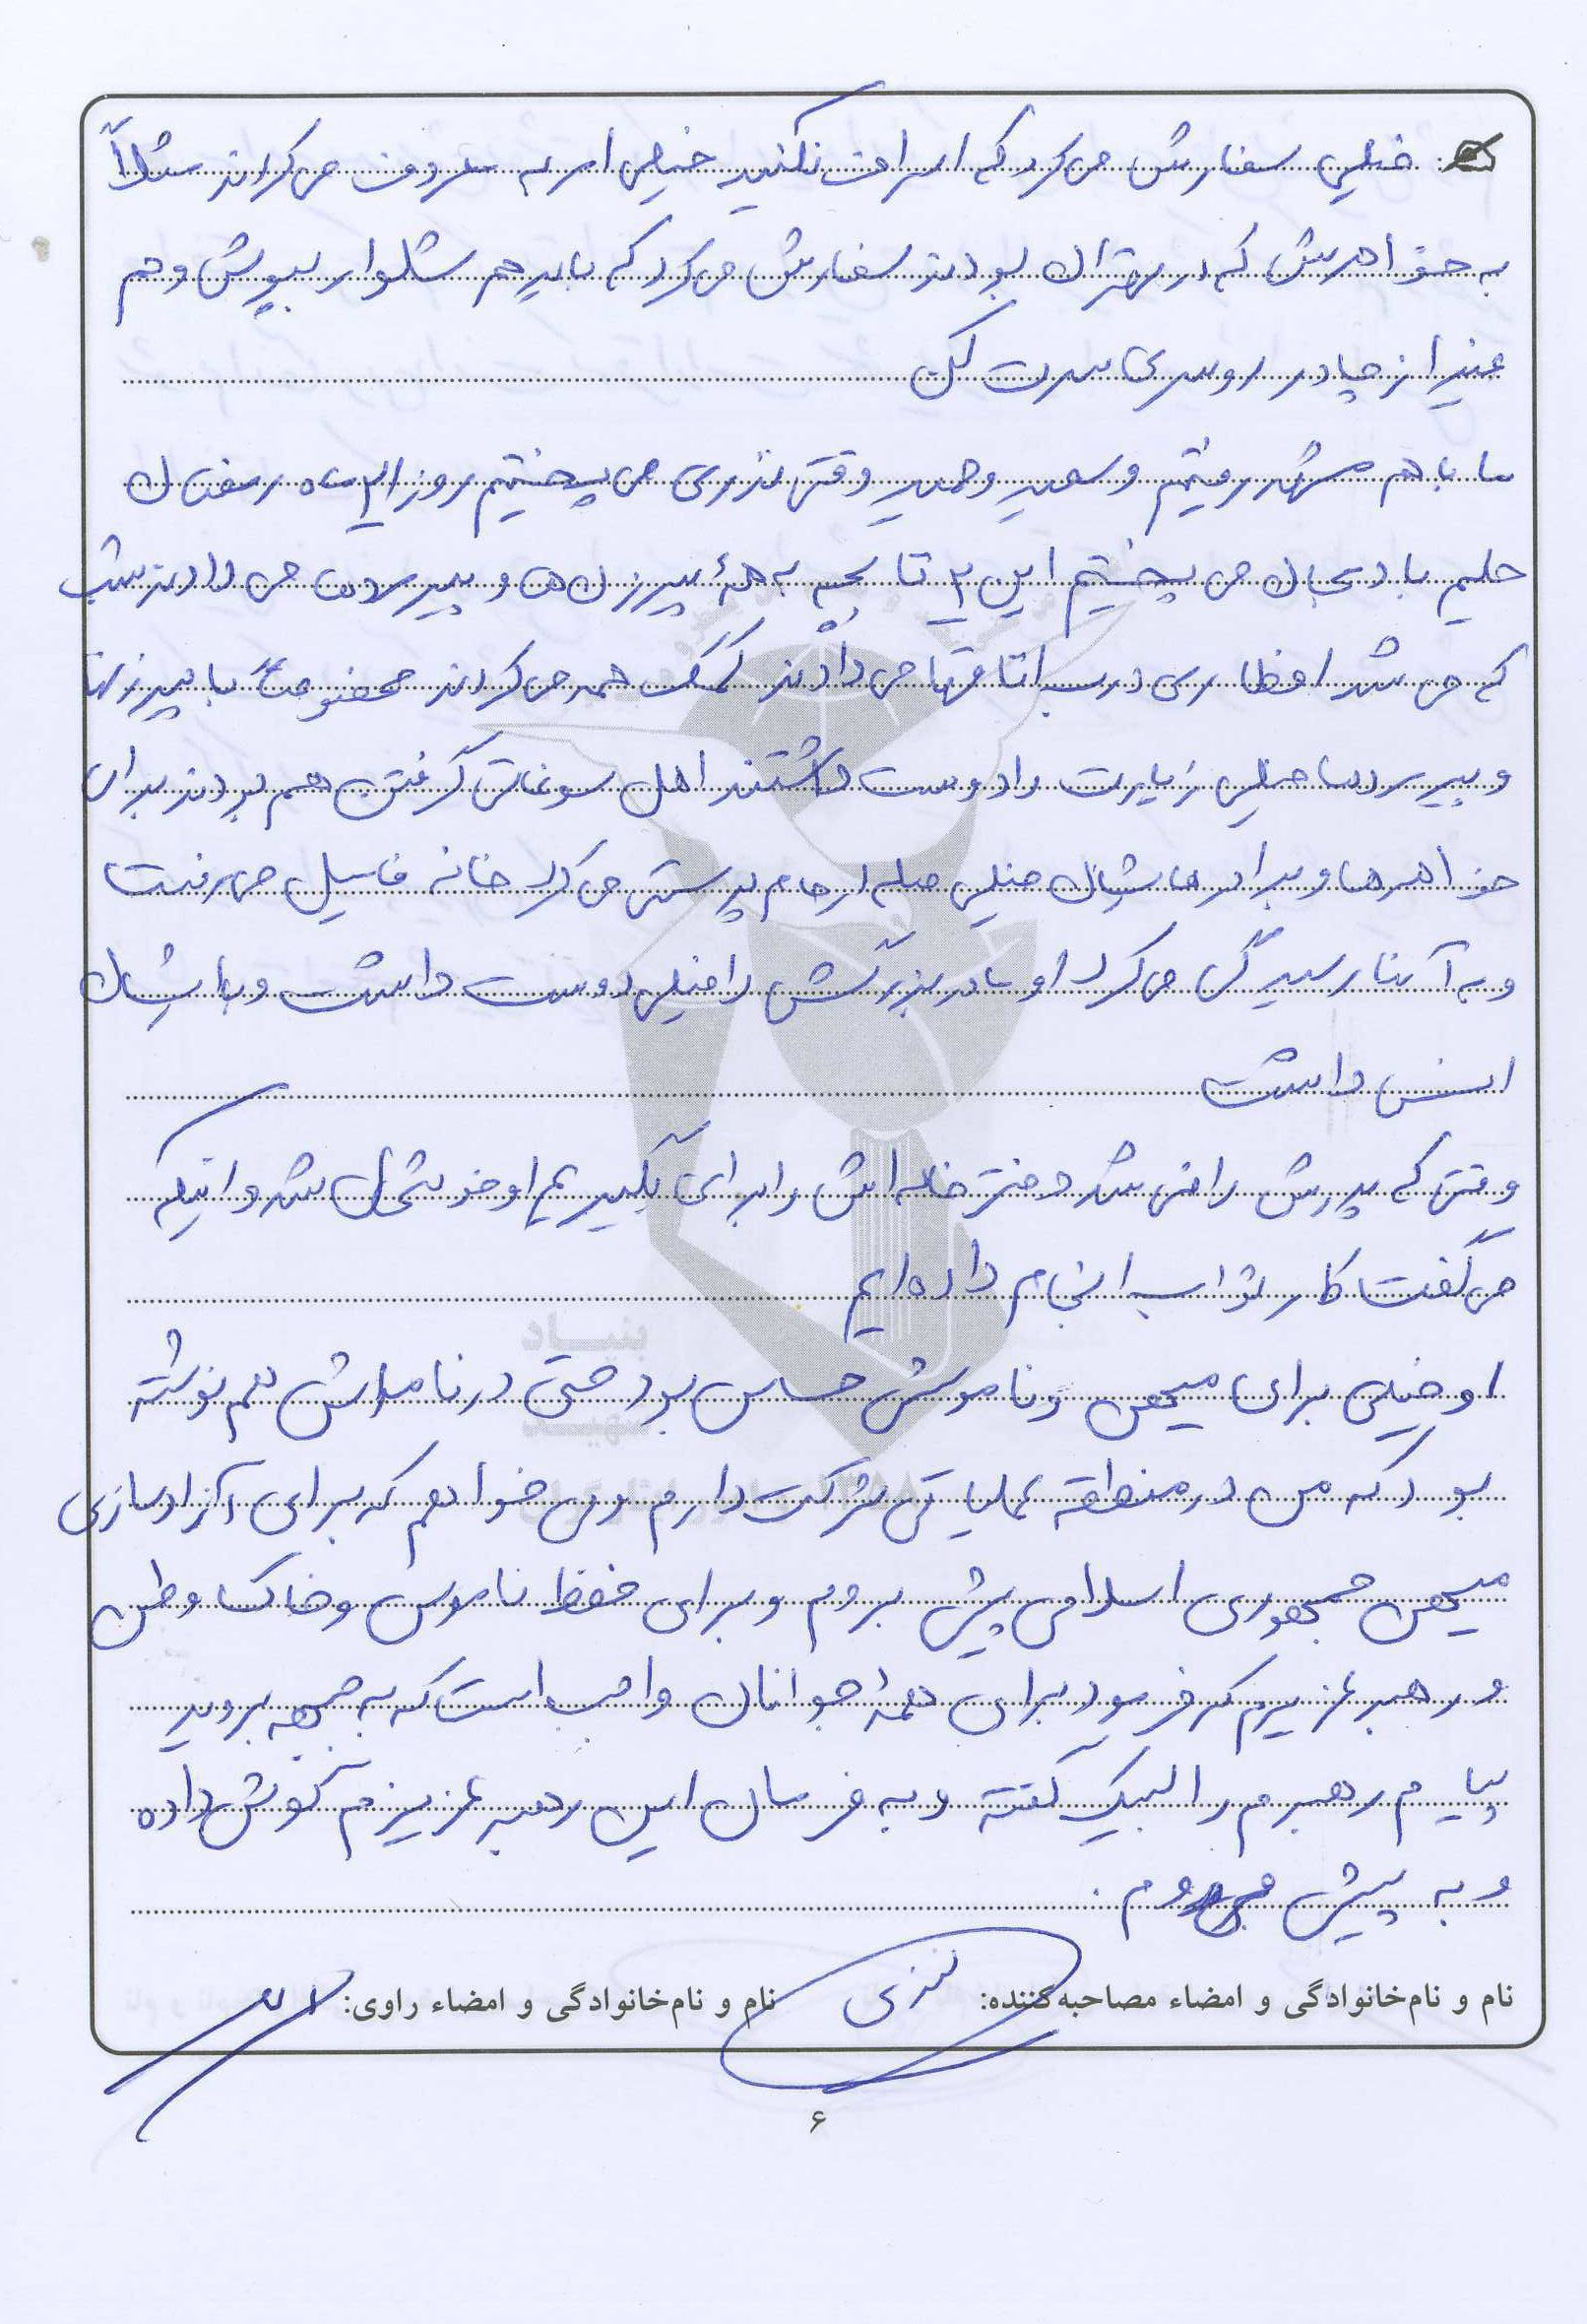 خیلی سفارش می‌کرد که اسراف نکنید خیلی امر به معروف می‌کردند مثلاً
به خواهرش که در تهران بودند سفارش می‌کرد که باید هم شلوار بپوش و هم
غیر از چادر روسری سرت کن
ما با هم مشهد رفتیم و سعید و حمید وقتی نذری می پختیم روز ۲۱ ماه رمضان
حلیم بادمجان می پختیم این ۲ تا بچه به همهٔ پیرزن‌ها و پیرمردها می دادند شب
که می شد افطاری درب اتاقها می دادند کمک همه می‌کردند مخصوصاً با پیرزنها
و پیرمردها خیلی زیارت را دوست داشتند اهل سوغاتی گرفتن هم بودند برای
خواهرها و برادرهایشان خیلی صله ارحام پرستی می کرد خانه فامیل می رفت
و به آنها رسیدگی می کرد او مادربزرگش را خیلی دوست داشت و با ایشان
انس داشت
وقتی که پدرش راضی شد دختر خاله اش را برای بگیریم او خوشحال شد و اینکه
می گفت کار ثواب انجام داده ایم
او خیلی برای میهن و ناموسش حساس بود حتی در نامه‌اش هم نوشته
بود که من در منطقه عملیاتی شرکت دارم و می خواهم که برای آزادسازی
میهن جمهوری اسلامی پیش بروم و برای حفظ ناموس و خاک وطن
و رهبر عزیزم که فرمود برای همهٔ جوانان واجب است که به جبهه بروند
پیام رهبرم را لبیک گفته و به فرمان این رهبر عزیزم گوش داده
و به پیش می روم.
نام و نام‌خانوادگی و امضاء مصاحبه‌کننده: نام و نام‌خانوادگی و امضاء راوی:
۶
بنیاد
شهید